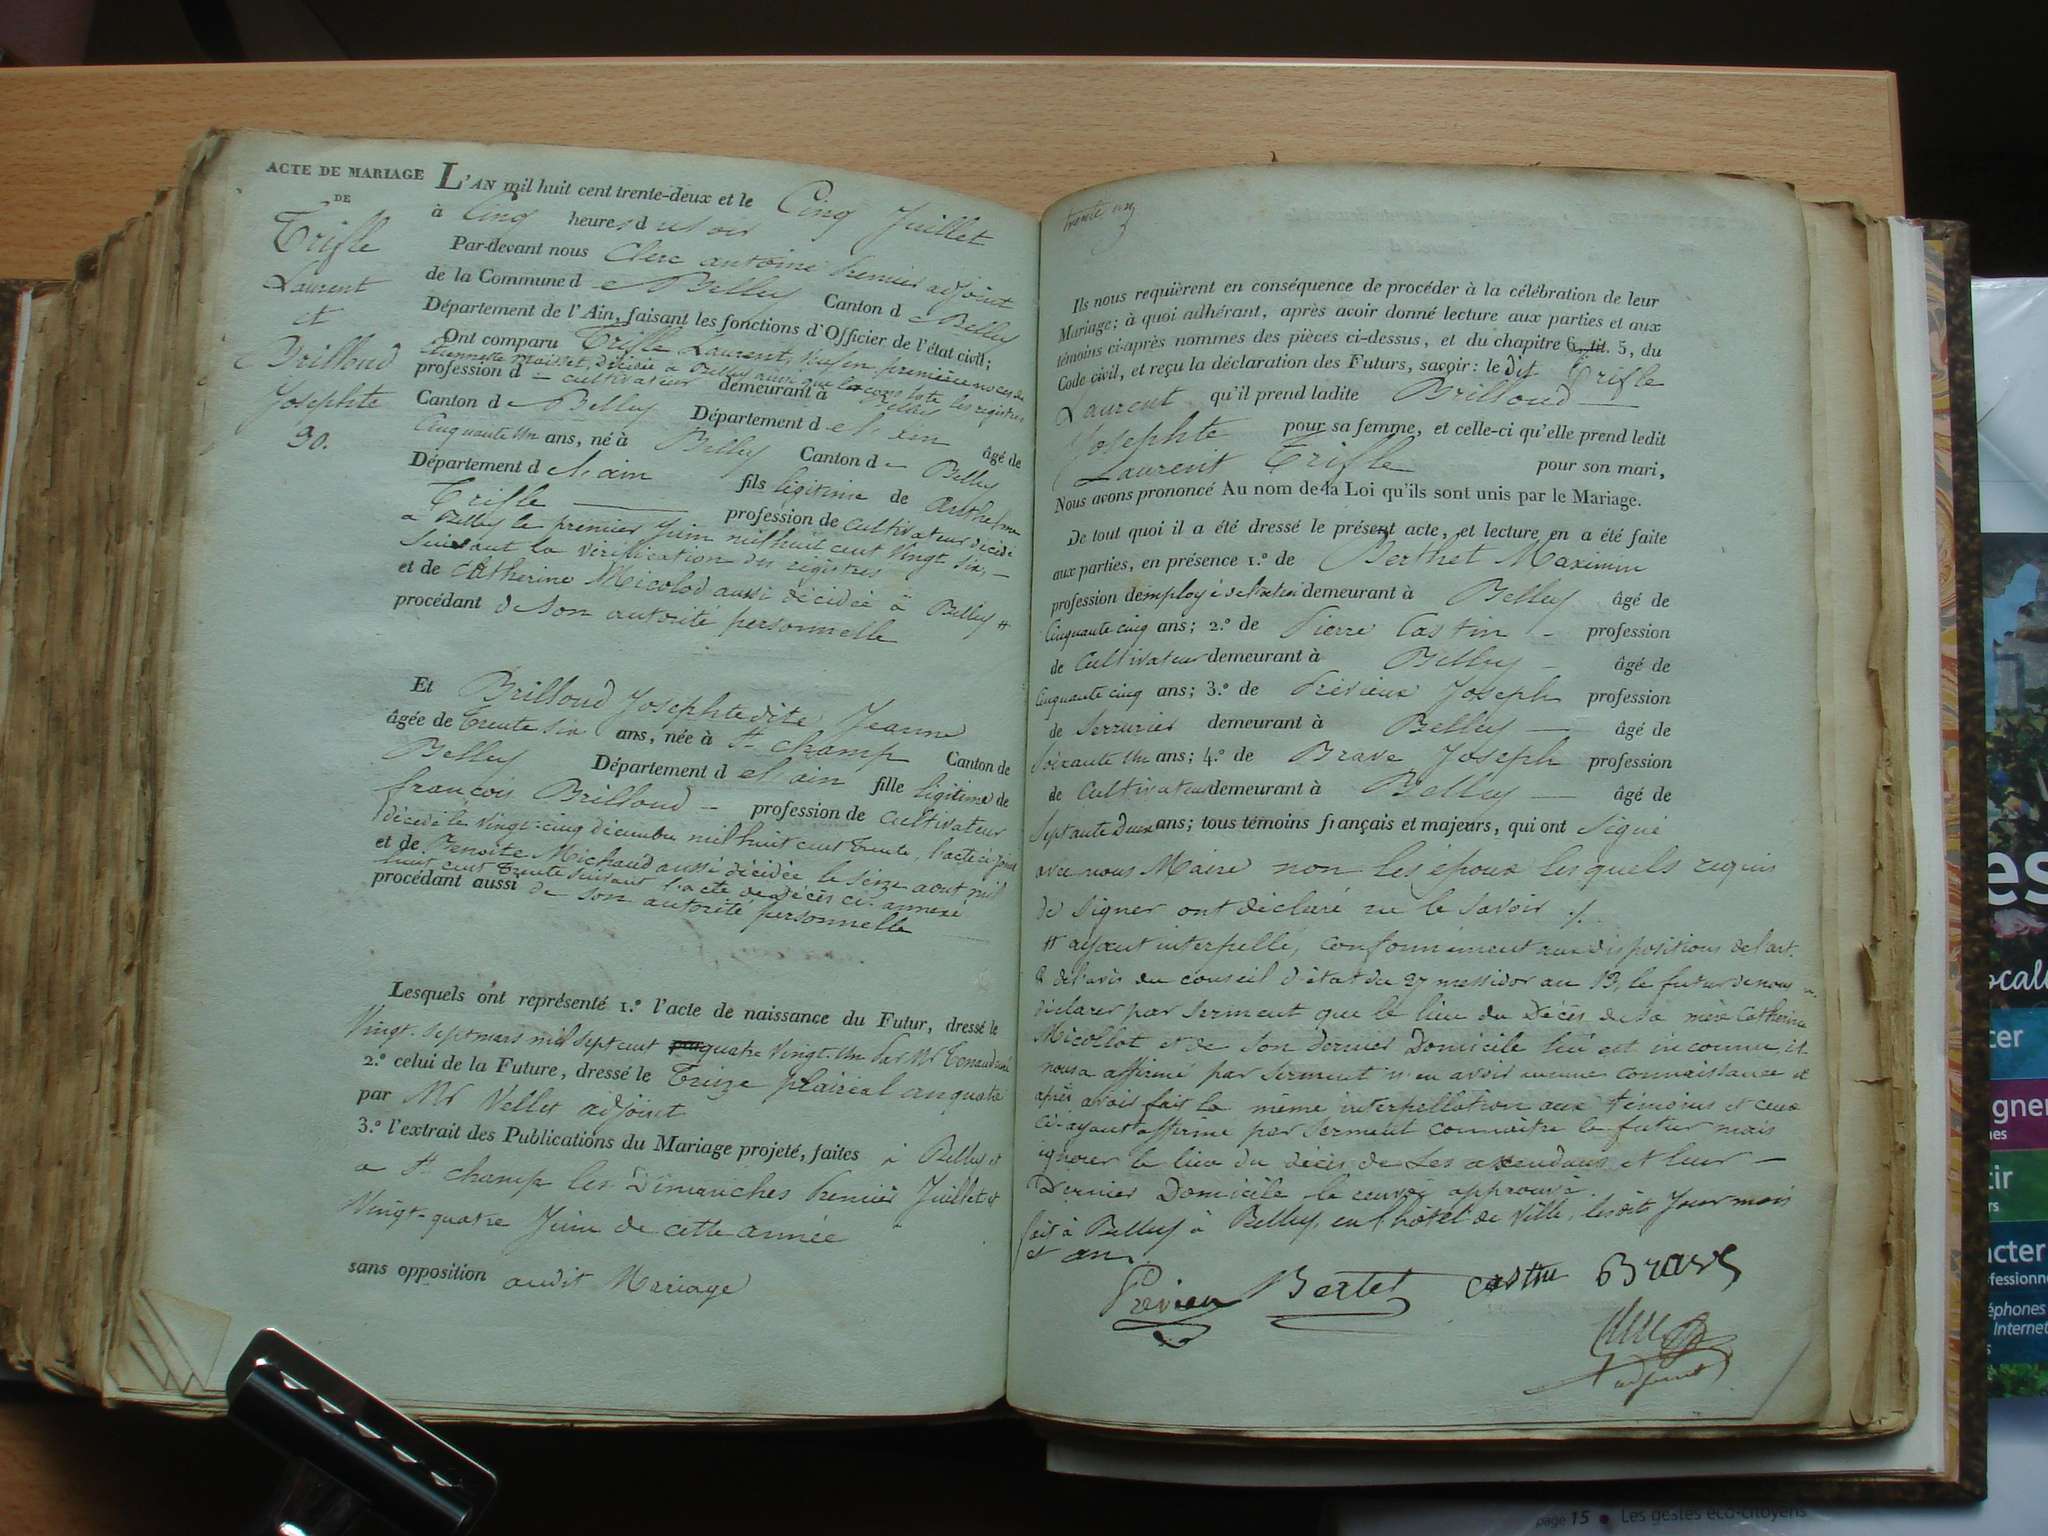 ACTE DE MARIAGE
DE
Trifle
Laurent
et
Brilloud
Josephte
30.
L'AN mil huit cent trente-deux et le Cinq Juillet
à Cinq heures du soir
Par-devant nous Clerc antoine premier adjoint
de la Commune de Belley Canton de Belley
Département de l'Ain, faisant les fonctions d'Officier de l'état civil;
Ont comparu Trifle Laurent, veuf en première noces de
décédée à Belley ainsi que le constate les registres
profession de cultivateur demeurant à Belley
Canton de Belley Département de l'ain âgé de
Cinquante un ans, né à Belley Canton de Belley
Département de l'ain fils légitime de Anthelme
Trifle profession de cultivateur décédé
a Belley le premier Juin mil huit cent vingt six,
suivant la vérification des registres
et de Catherine Micolod aussi décédée à Belley #
procédant de son autorité personnelle
Et Brilloud Josephte dite Jeanne
âgée de Trente Six ans, née à St champ Canton de
Belley Département de l'ain fille légitime de
françois Brilloud profession de Cultivateur
décédé le vingt-cinq décembre mil huit cent Trente, l'acte ci joint
et de Benoite Michaud aussi décédée le seize aout mil
huit cent Trente suivant l'acte de décès ci-annexé
procédant aussi de son autorité personnelle
Lesquels ont représenté 1.º l'acte de naissance du Futur, dressé le
Vingt-sept mars mil sept cent quatre vingt-un par Mr
2.º celui de la Future, dressé le Treize plairéal an quatre
par Mr Vellet adjoint
3.º l'extrait des Publications du Mariage projeté, faites à Belley et
a St champ les Dimanches Premier Juillet et
Vingt-quatre Juin de cette année
sans opposition audit Mariage
trente un
Ils nous requièrent en conséquence de procéder à la célébration de leur
Mariage; à quoi adhérant, après avoir donné lecture aux parties et aux
témoins ci-après nommes des pièces ci-dessus, et du chapitre 6, tit. 5, du
Code civil, et reçu la déclaration des Futurs, savoir: le dit Trifle
Laurent qu'il prend ladite Brilloud
Josephte pour sa femme, et celle-ci qu'elle prend ledit
Laurent Trifle pour son mari,
Nous avons prononcé Au nom de la Loi qu'ils sont unis par le Mariage.
De tout quoi il a été dressé le présent acte, et lecture en a été faite
aux parties, en présence 1.º de Berthet Maximin
profession d'employé demeurant à Belley âgé de
Cinquante cinq ans; 2.º de Pierre Castin profession
de Cultivateur demeurant à Belley âgé de
Cinquante cinq ans; 3.º de Prévieux Joseph profession
de Serrurier demeurant à Belley âgé de
Soixante un ans; 4.º de Brave Joseph profession
de Cultivateur demeurant à Belley âgé de
Septante Deux ans; tous témoins français et majeurs, qui ont signé
avec nous Maire non les époux lesquels requis
de signer ont déclaré ne le savoir ./.
# ayant interpellé, conformément aux dispositions de l'art.
de l'avis du conseil d'état du 27 messidor an 13, le futur de nous
déclarer par serment que le lieu du Décès de sa mère Catherine
Micollot et de son dernier Domicile lui est inconnu, il
nous a affirmé par serment n'en avoir aucune connaissance et
après avoir fait la même interpellation aux témoins et ceux
ci-ayant affirmé par serment connaitre le futur mais
ignorer le lieu du décès de ses ascendans et leur
Dernier Domicile le renvoi approuvé.
fait à Belley à Belley, en l'hôtel de Ville, lesdits Jour mois
et an.
Prévieu Bertet Castin Brave
Clerc
adjoint
es
ocale
cer
gner
nes
tir
rs
acter
ofessionne
éphones
Internet
page 15 • Les gestes éco-citoyens